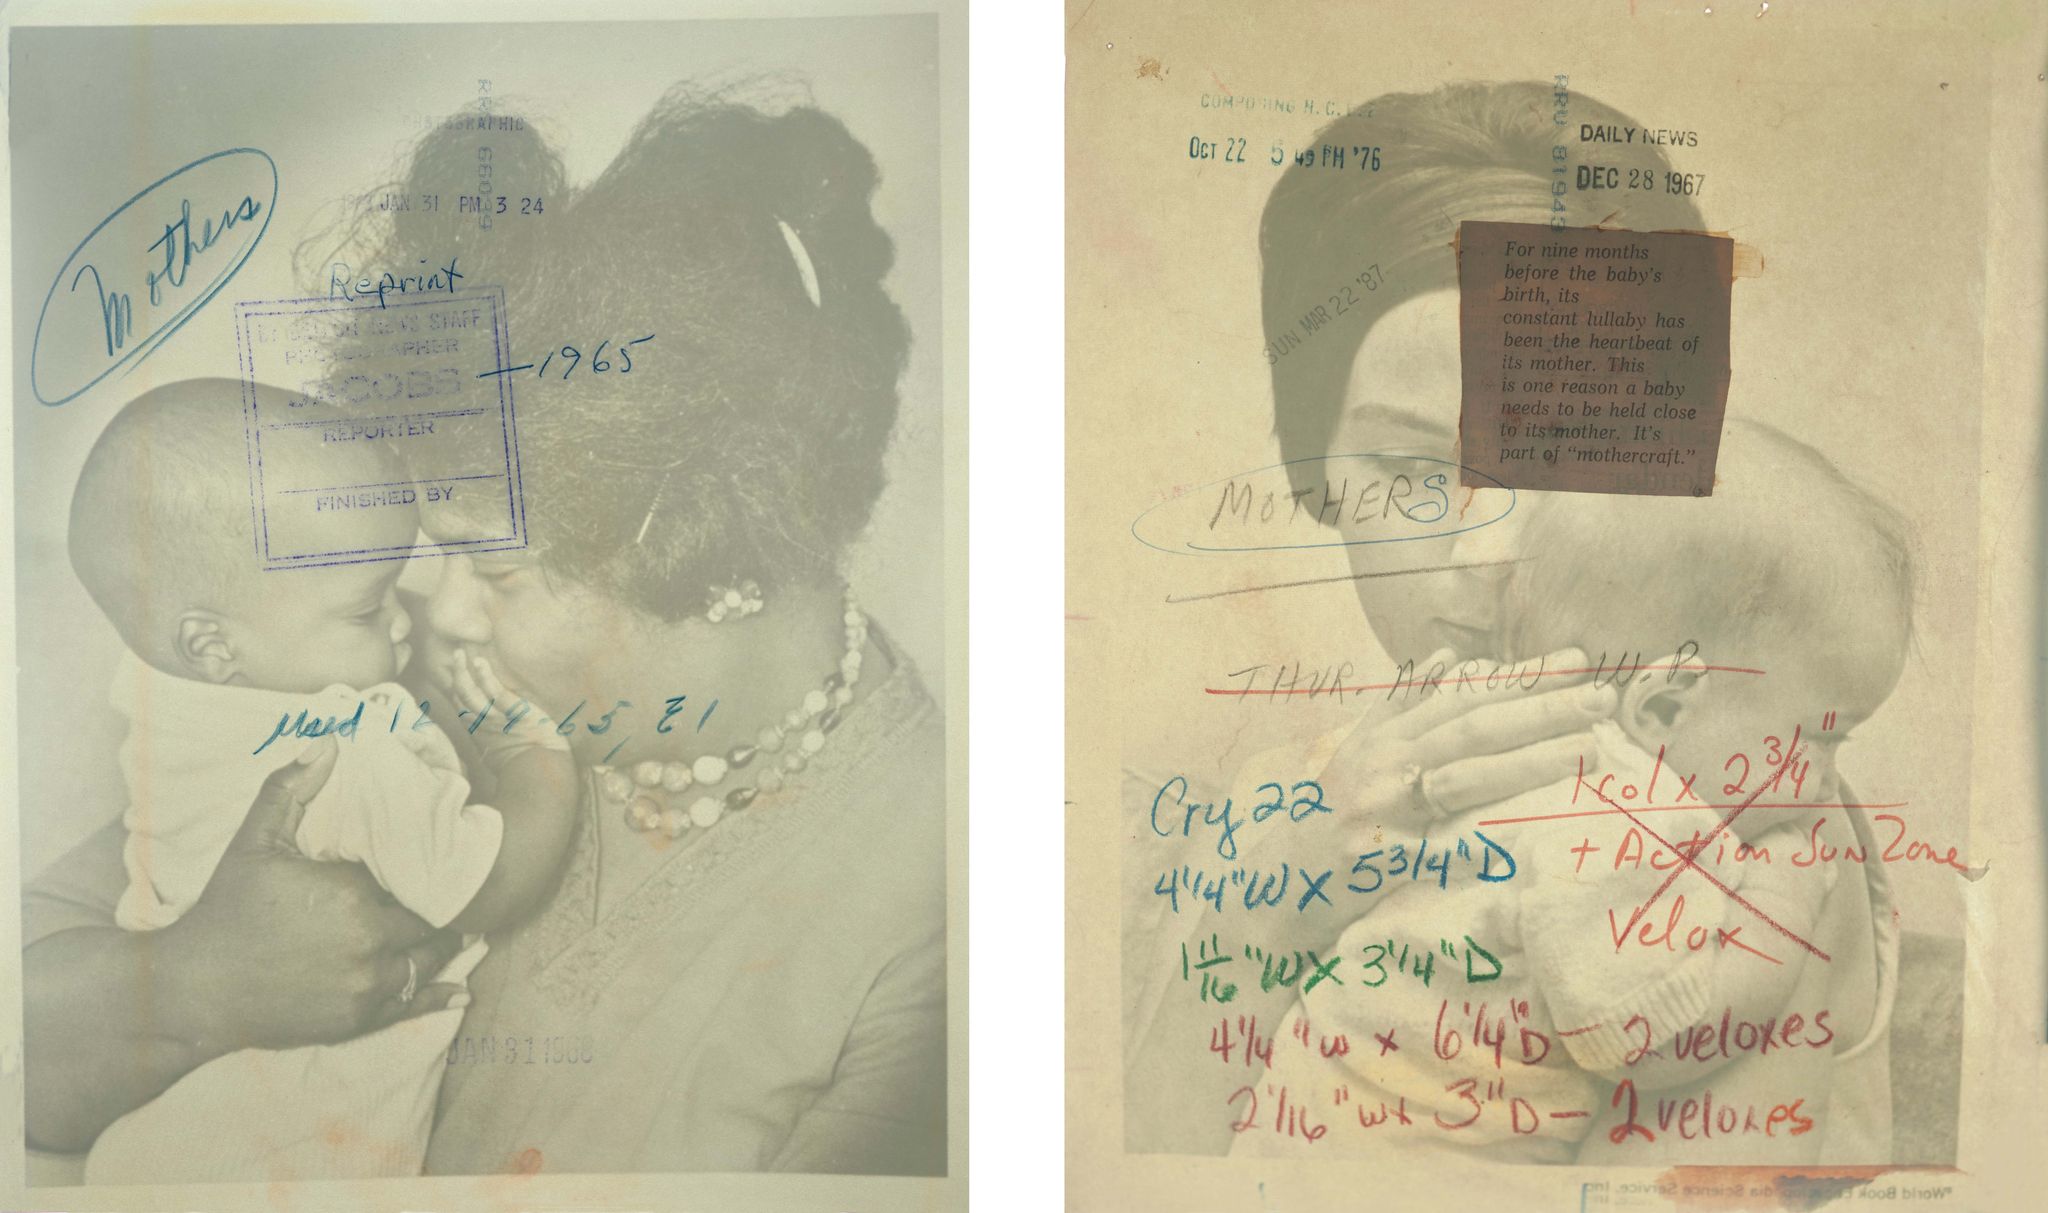 PHOTOGRAPHIC
JAN 31 PM 3 24
Mothers
Reprint
NEWS STAFF
PHOTOGRAPHER
JACOBS
-1965
REPORTER
FINISHED BY
Used 12-19-65, E1
JAN 31
COMPOSING
OCT 22 5 49 PM '76
RRU 81943
DAILY NEWS
DEC 28 1967
SUN MAR 22 '87
For nine months
before the baby's
birth, its
constant lullaby has
been the heartbeat of
its mother. This
is one reason a baby
needs to be held close
to its mother. It's
part of "mothercraft."
MOTHERS
THUR. ARROW W.P.
1 col x 2 3/4"
+ Action Sun Zone
Velox
Cry 22
4 1/4" W X 5 3/4" D
1 11/16 "W X 3 1/4" D
4 1/4 "W x 6 1/4" D — 2 veloxes
2 1/16 "W x 3" D — 2 veloxes
"World Book Encyclopedia Science Service, Inc.